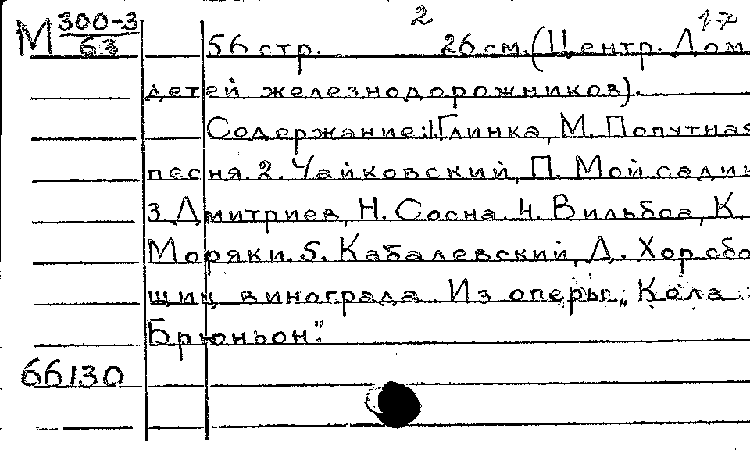 2 17
М 300-3
63
56 стр. 26 см. (Центр. Дом
детей железнодорожников).
Содержание: 1. Глинка, М. Попутная
песня. 2. Чайковский, П. Мой садик
3. Дмитриев, Н. Сосна. 4. Вильбоа, К.
Моряки. 5. Кабалевский, Д. Хор сбо
щиц винограда. Из оперы „Кола
Брюньон".
66130